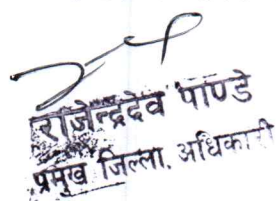 राजेन्द्रदेव पाण्डे
प्रमुख जिल्ला अधिकारी